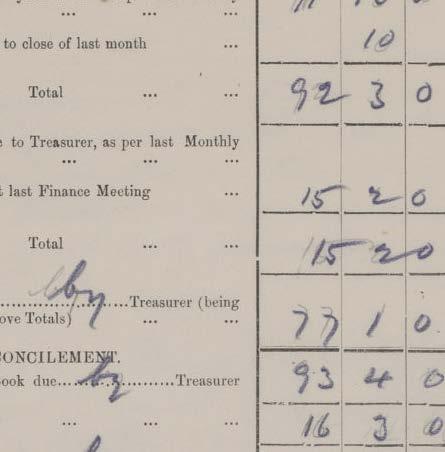 ... ... ...
to close of last month ... 10
Total ... ... 92 3 0
to Treasurer, as per last Monthly
... ... ...
last Finance Meeting ... 15 2 0
Total ... ... 15 2 0
by Treasurer (being
ove Totals) ... ... 77 1 0
CONCILEMENT.
ook due by Treasurer 93 4 0
... ... ... 16 3 0